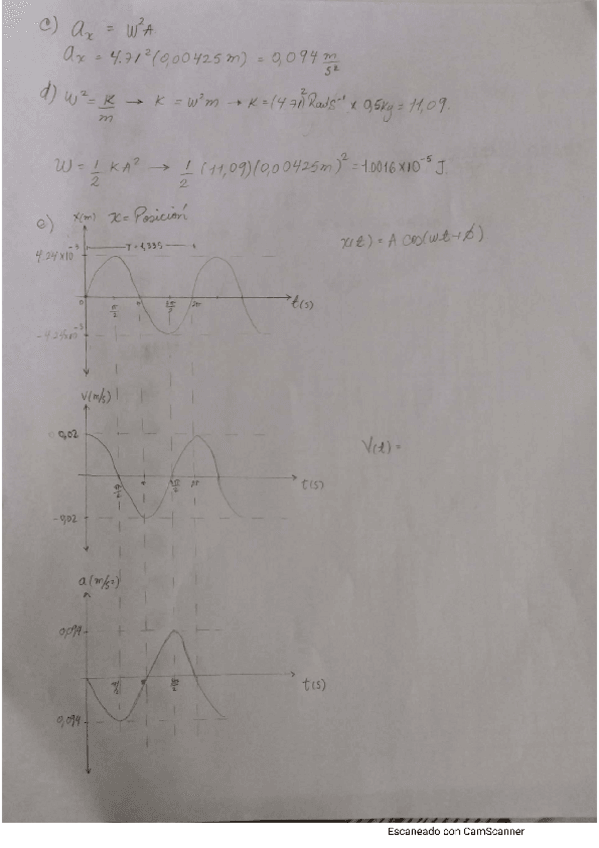 c) ax = W²A
ax = 4.71² (0,00425m) = 0,094 m/s²
d) W² = K/m → K = W²m → K = (4.71)² Rad s⁻¹ x 0,5kg = 11,09.
W = 1/2 KA² → 1/2 (11,09)(0,00425m)² = 1.0016x10⁻⁵ J.
e) x(m) x = Posición
x(t) = A cos(wt+φ)
T = 1,33s
4.24x10⁻³
0 π/2 π 2π t(s)
-4.24x10⁻³
V(m/s)
0,02
V(t) =
π/2 π 3π/2 2π t(s)
-0,02
a(m/s²)
0,094
π/2 π 3π/2 t(s)
0,094
Escaneado con CamScanner